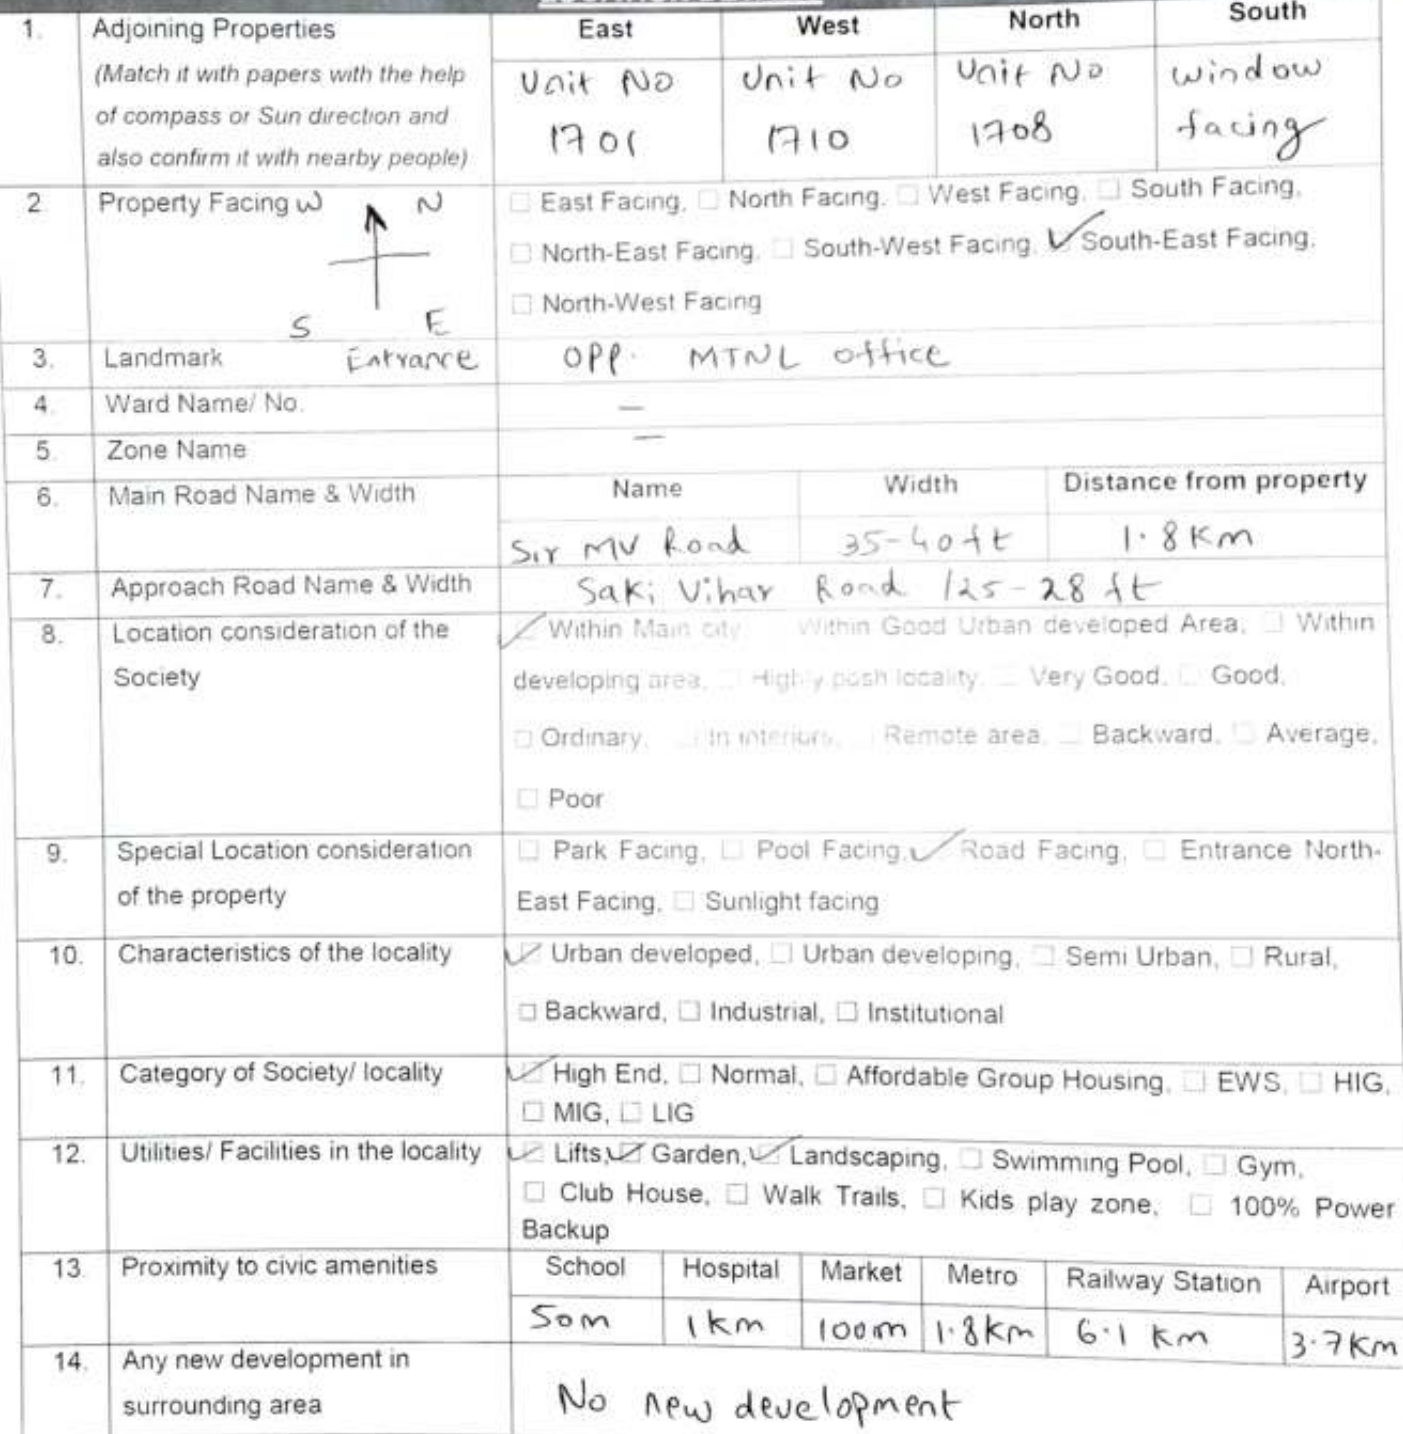 1. Adjoining Properties East West North South
(Match it with papers with the help
of compass or Sun direction and
also confirm it with nearby people)
Unit No 1701 Unit No 1710 Unit No 1708 window facing
2. Property Facing W N
S E
Entrance
☐ East Facing, ☐ North Facing, ☐ West Facing, ☐ South Facing,
☐ North-East Facing, ☐ South-West Facing, ✓ South-East Facing,
☐ North-West Facing
3. Landmark OPP. MTNL office
4. Ward Name/ No. —
5. Zone Name —
6. Main Road Name & Width Name Width Distance from property
Sir MV Road 35-40ft 1.8Km
7. Approach Road Name & Width Saki Vihar Road /25-28 ft
8. Location consideration of the
Society
✓ Within Main city, Within Good Urban developed Area, ☐ Within
developing area, ☐ Highly posh locality, ☐ Very Good, ☐ Good,
☐ Ordinary, ☐ In interiors, ☐ Remote area, ☐ Backward, ☐ Average,
☐ Poor
9. Special Location consideration
of the property
☐ Park Facing, ☐ Pool Facing, ✓ Road Facing, ☐ Entrance North-
East Facing, ☐ Sunlight facing
10. Characteristics of the locality
✓ Urban developed, ☐ Urban developing, ☐ Semi Urban, ☐ Rural,
☐ Backward, ☐ Industrial, ☐ Institutional
11. Category of Society/ locality
✓ High End, ☐ Normal, ☐ Affordable Group Housing, ☐ EWS, ☐ HIG,
☐ MIG, ☐ LIG
12. Utilities/ Facilities in the locality
✓ Lifts, ✓ Garden, ✓ Landscaping, ☐ Swimming Pool, ☐ Gym,
☐ Club House, ☐ Walk Trails, ☐ Kids play zone, ☐ 100% Power
Backup
13. Proximity to civic amenities School Hospital Market Metro Railway Station Airport
50m 1km 100m 1.8Km 6.1 Km 3.7Km
14. Any new development in
surrounding area
No new development